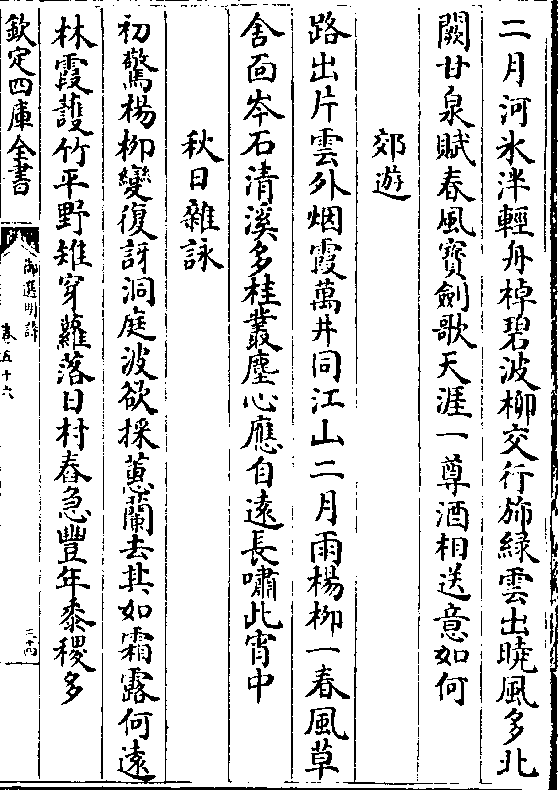 二月河氷泮輕舟棹碧波柳交行斾緑雲出曉風多北
闕甘泉賦春風寳劍歌天涯一尊酒相送意如何
郊遊
路出片雲外烟霞萬井同江山二月雨楊栁一春風草
舍面岑石清溪多桂叢塵心應自遠長嘯此宵中
秋日雜詠
初驚楊栁變復訝洞庭波欲採蕙蘭去其如霜露何遠
林霞護竹平野雉穿蘿落日村舂急豐年黍稷多
欽定四庫全書
御選明詩
卷五十六
三十四